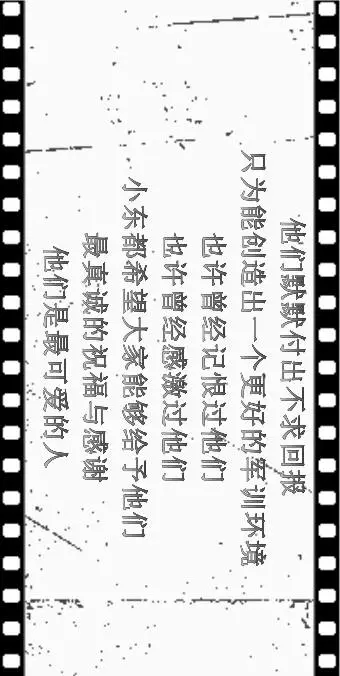 他们默默付出不求回报
只为能创造出一个更好的军训环境
也许曾经记恨过他们
也许曾经感激过他们
小东都希望大家能够给予他们
最真诚的祝福与感谢
他们是最可爱的人